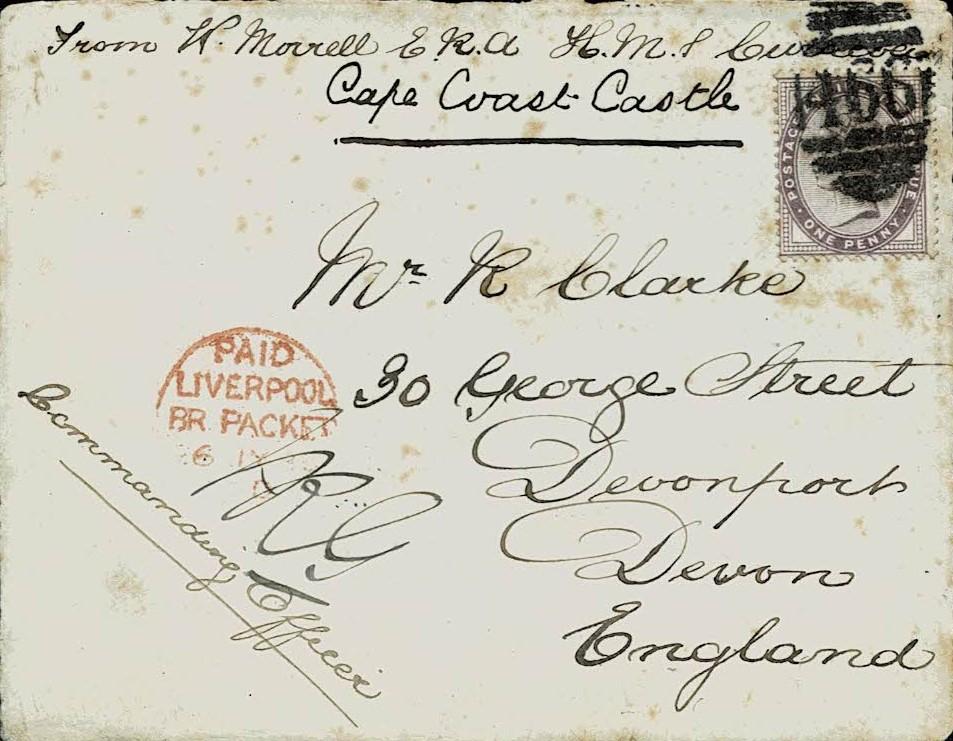 From W. Morrell E.R.A H.M.S
Cape Coast Castle
466
POSTAGE
ONE PENNY
Mr R Clarke
30 George Street
Devonport
Devon
England
PAID
LIVERPOOL
BR. PACKET
6
Commanding Officer